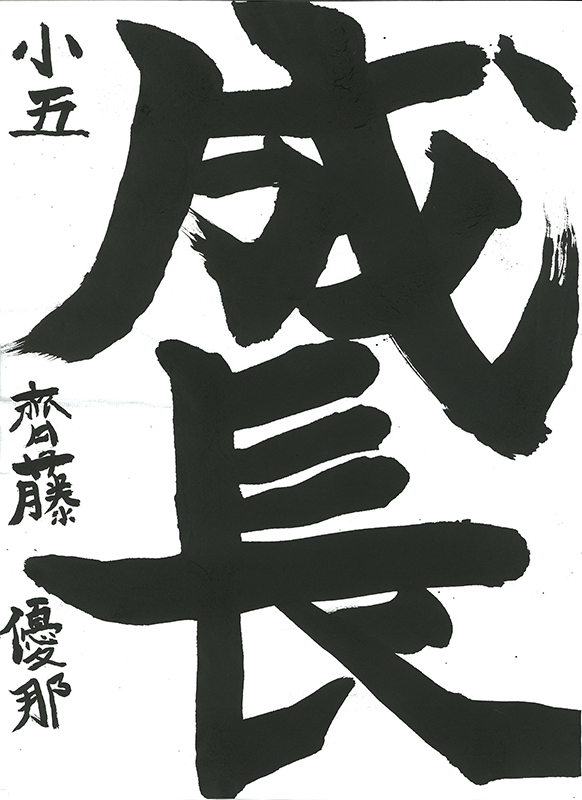 成長
小五
齊藤
優那